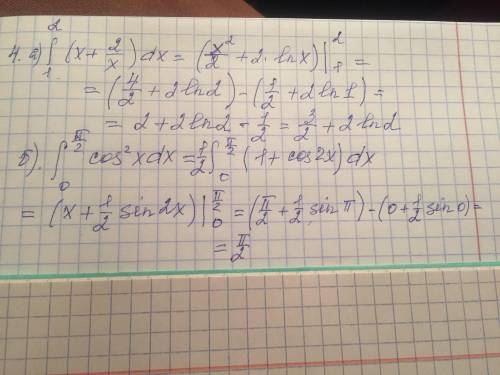 4. а) ∫₁² (x + 2/x) dx = (x²/2 + 2·lnx) |₁² =
= (4/2 + 2ln2) - (1/2 + 2ln1) =
= 2 + 2ln2 - 1/2 = 3/2 + 2ln2
б). ∫₀^(π/2) cos²x dx = 1/2 ∫₀^(π/2) (1 + cos2x) dx
= (x + 1/2 sin2x) |₀^(π/2) = (π/2 + 1/2 sin π) - (0 + 1/2 sin 0) =
= π/2